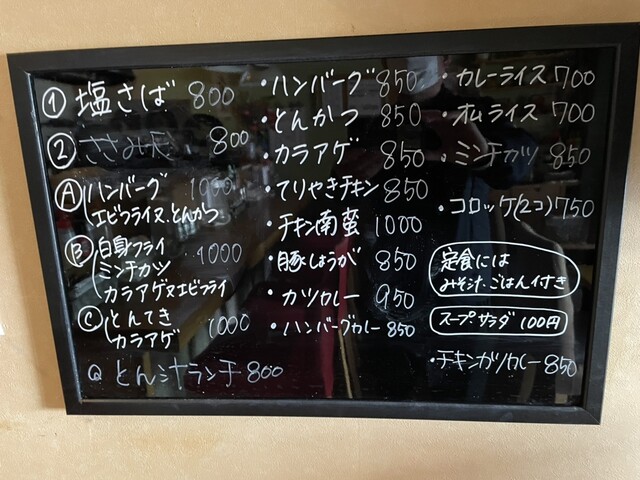 ① 塩さば 800
② ささみ 800
Ⓐ ハンバーグ 1000
エビフライ又、とんかつ
Ⓑ 白身フライ 1000
ミンチカツ
カラアゲ又エビフライ
Ⓒ とんてき 1000
カラアゲ
とん汁ランチ 800
・ハンバーグ 850
・とんかつ 850
・カラアゲ 850
・てりやきチキン 850
・チキン南蛮 1000
・豚しょうが 850
・カツカレー 950
・ハンバーグカレー 850
・カレーライス 700
・オムライス 700
・ミンチカツ 850
・コロッケ(2コ) 750
定食には
みそ汁、ごはん付き
スープ、サラダ 100円
・チキンカツカレー 850